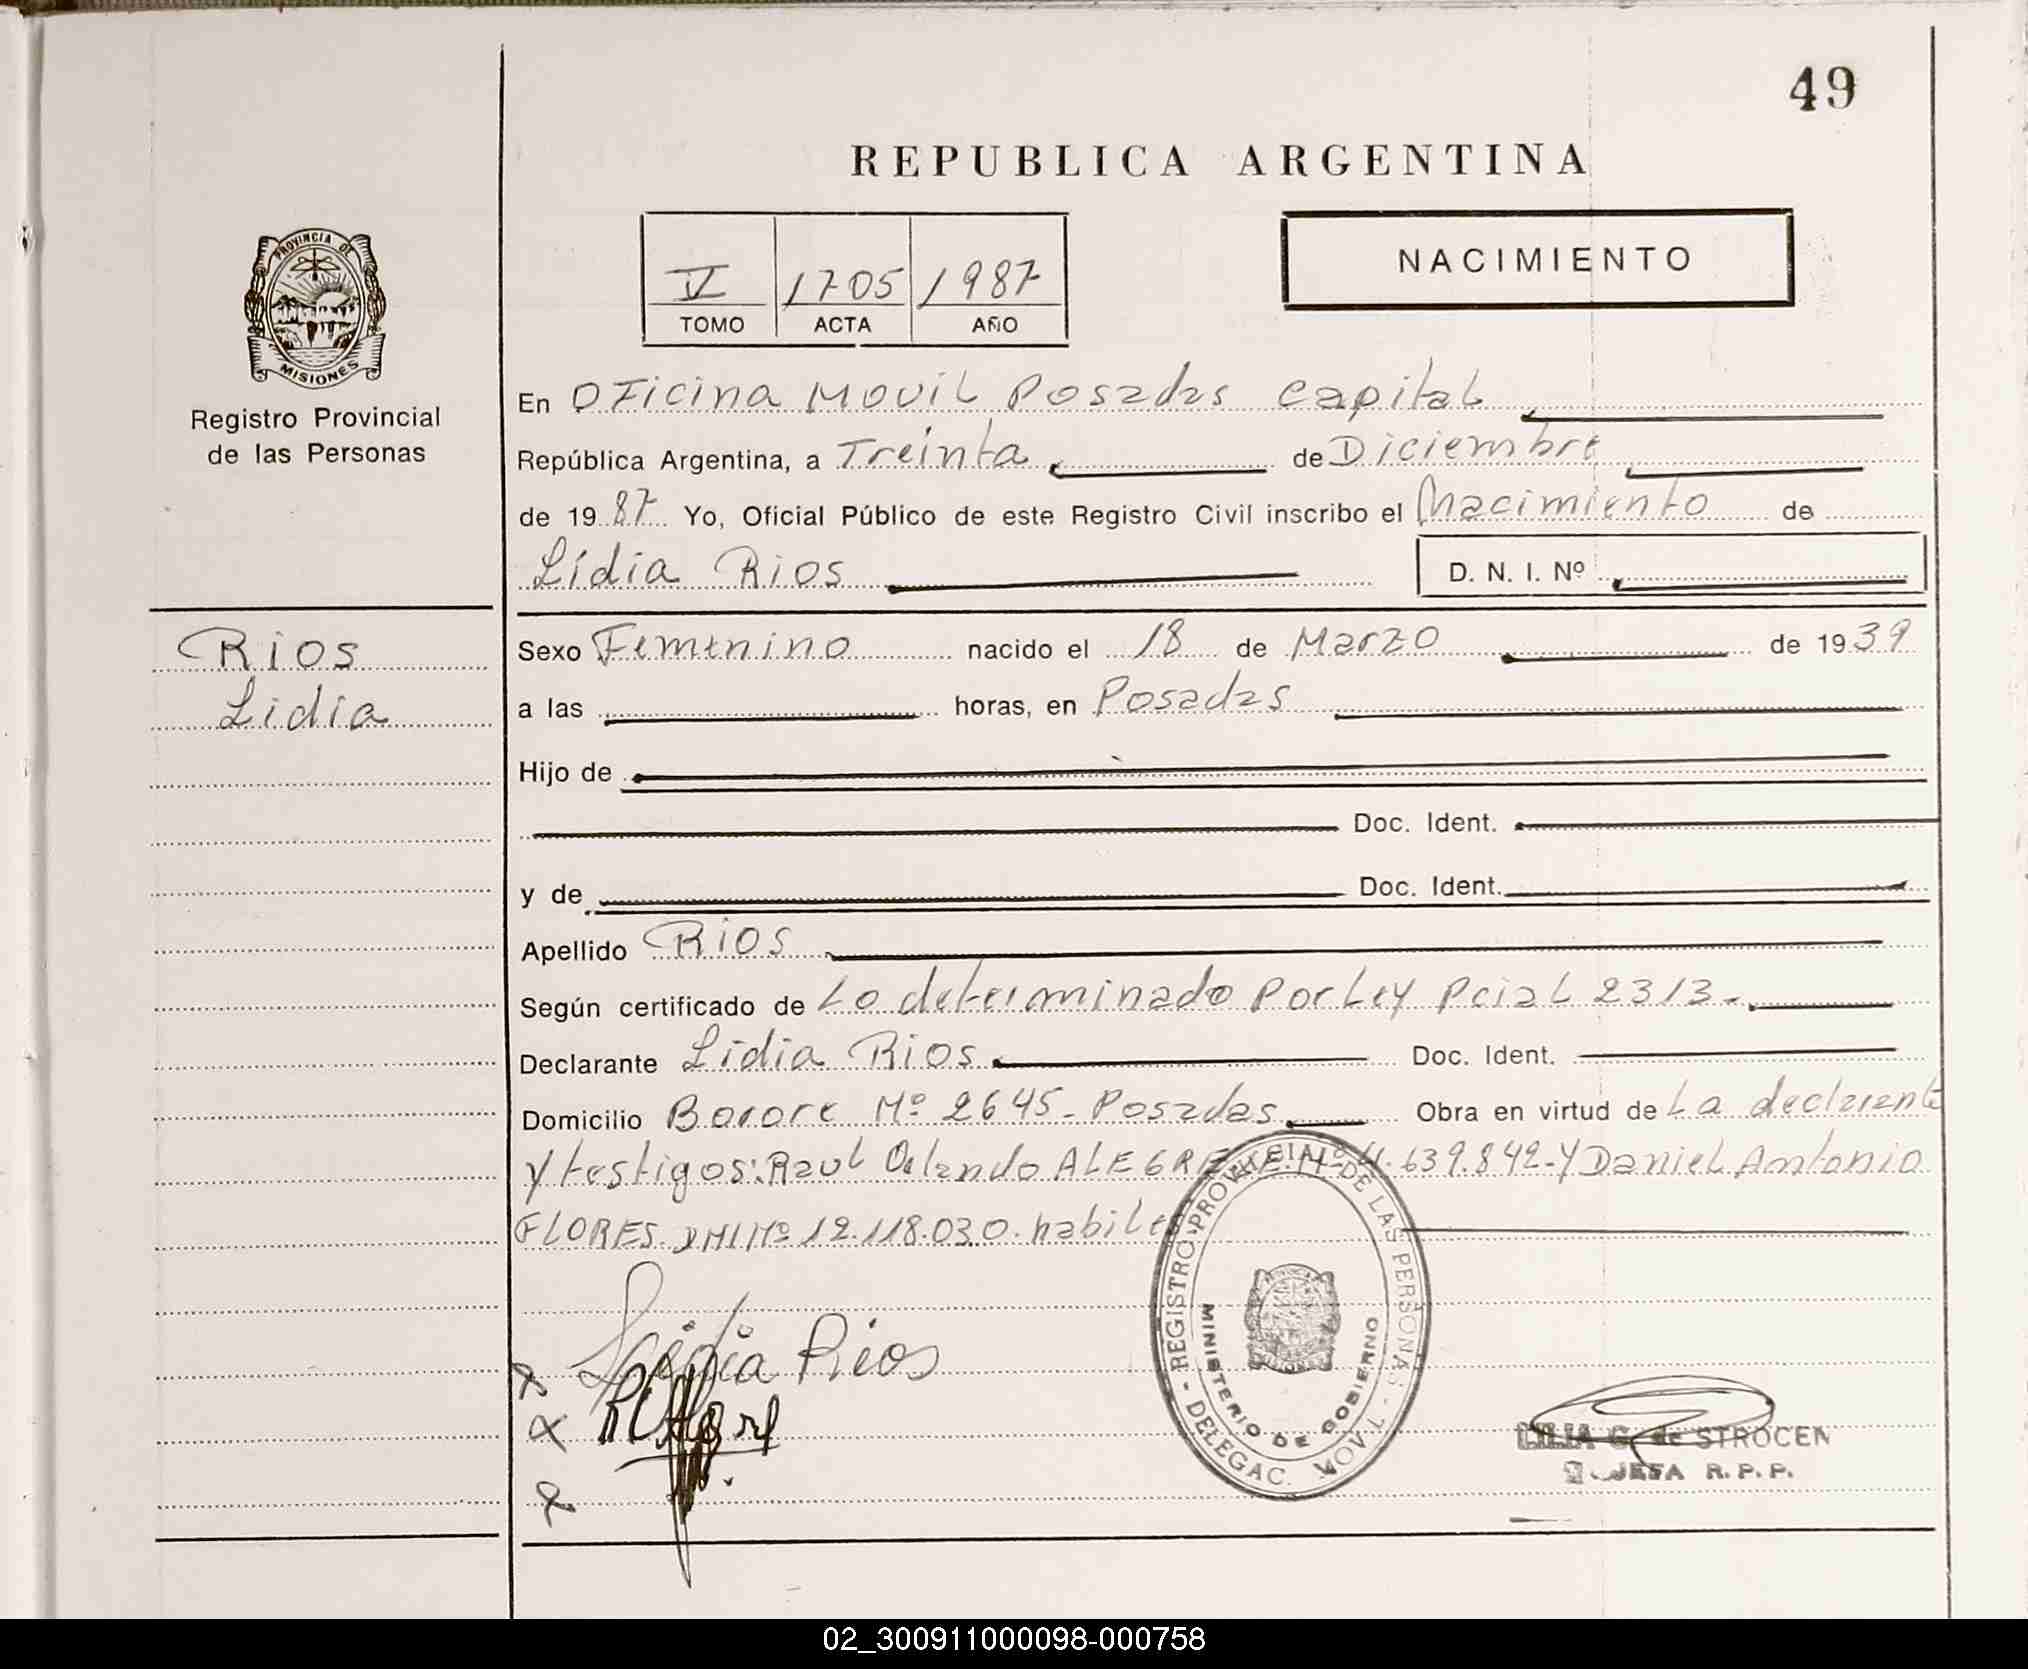 49
REPUBLICA ARGENTINA
V 1705 1987
TOMO ACTA AÑO
NACIMIENTO
PROVINCIA DE
MISIONES
Registro Provincial
de las Personas
En Oficina Movil Posadas Capital
República Argentina, a Treinta de Diciembre
de 1987 Yo, Oficial Público de este Registro Civil inscribo el Nacimiento de
Lidia Rios D. N. I. Nº
Rios
Lidia
Sexo Femenino nacido el 18 de Marzo de 1939
a las horas, en Posadas
Hijo de
Doc. Ident.
y de Doc. Ident.
Apellido Rios
Según certificado de Lo determinado Por Ley Pcial 2313.
Declarante Lidia Rios Doc. Ident.
Domicilio Borore Nº 2645 - Posadas Obra en virtud de La declarante
y testigos: Raul Orlando ALEGRE Nº 639.842 - Y Daniel Antonio
FLORES. DNI Nº 12.118.030. habiles
Lidia Rios
REGISTRO PROVINCIAL DE LAS PERSONAS - DELEGAC. MOV. 1
MINISTERIO DE GOBIERNO
LILIA G. de STROCEN
JEFA R. P. P.
02_300911000098-000758